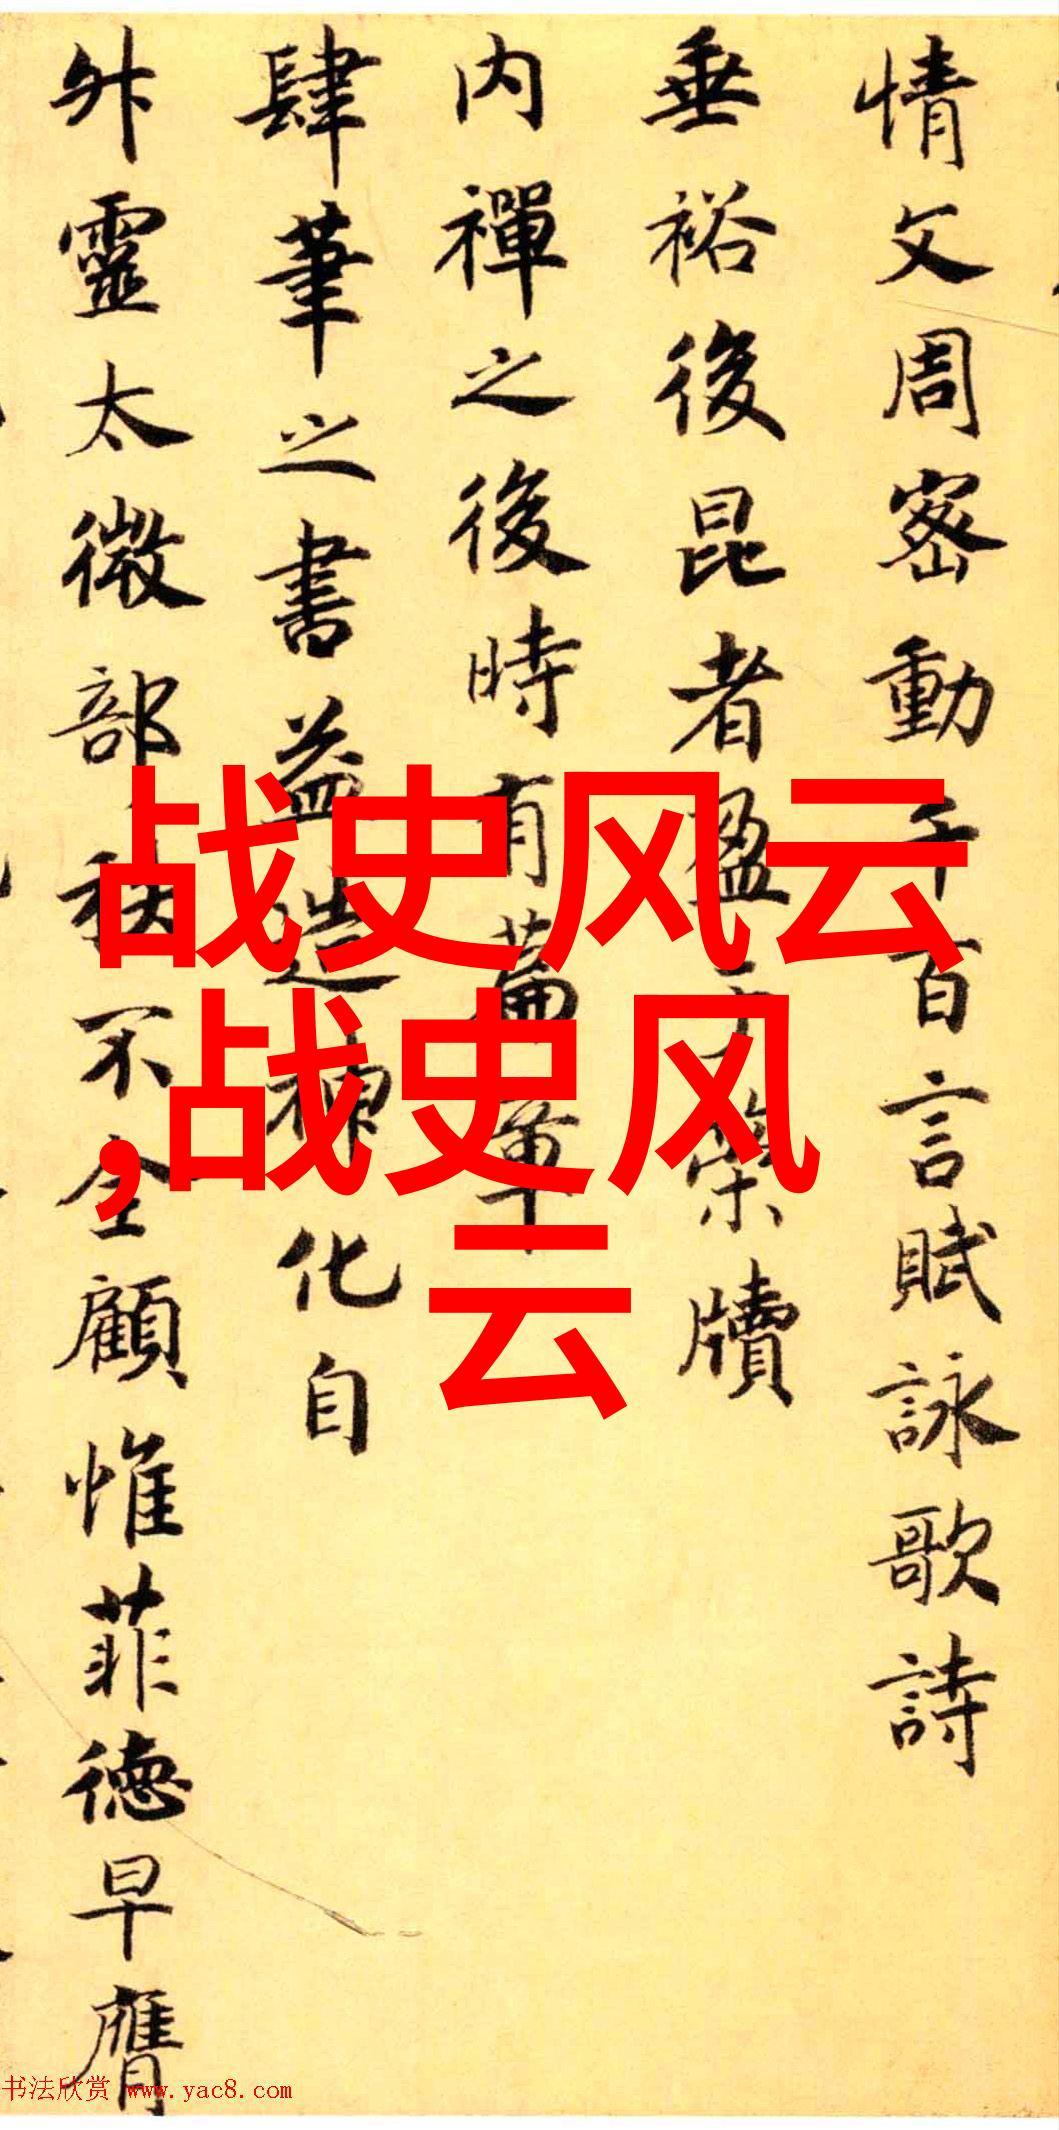 情文周密動千百言賦詠歌詩
垂裕後昆者盈于槩牘
内禪之後時有篇章
肆筆之書益造神化自
外靈太微部秩不全顧惟菲德早膺
战史风云
,战史风
云
书法欣赏 www.yac8.com